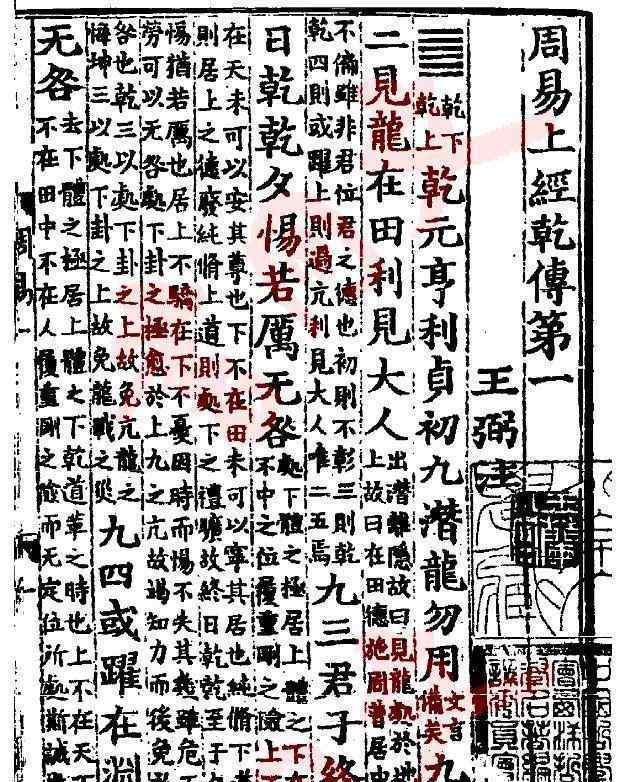 周易上經乾傳第一
王弼注
䷀
乾下
乾上
乾元亨利貞初九潛龍勿用
文言
備矣
九
二見龍在田利見大人
出潛離隱故曰見龍處於地
上故曰在田德施周普居中
不偏雖非君位君之德也初則不彰三則乾
乾四則或躍上則過亢利見大人唯二五焉
九三君子終
日乾乾夕惕若厲无咎
處下體之極居上體之下在
不中之位履重剛之險上不
在天未可以安其尊也下不在田未可以寧其居也純脩下
則居上之德廢純脩上道則處下之禮曠故終日乾乾至于夕
惕猶若厲也居上不驕在下不憂因時而惕不失其幾雖危
勞可以无咎處下卦之極愈於上九之亢故竭知力而後免
咎也乾三以處下卦之上故免亢龍之
悔坤三以處下卦之上故免龍戰之災
九四或躍在淵
无咎
去下體之極居上體之下乾道革之時也上不在天下
不在田中不在人履重剛之險而无定位所處斯誠